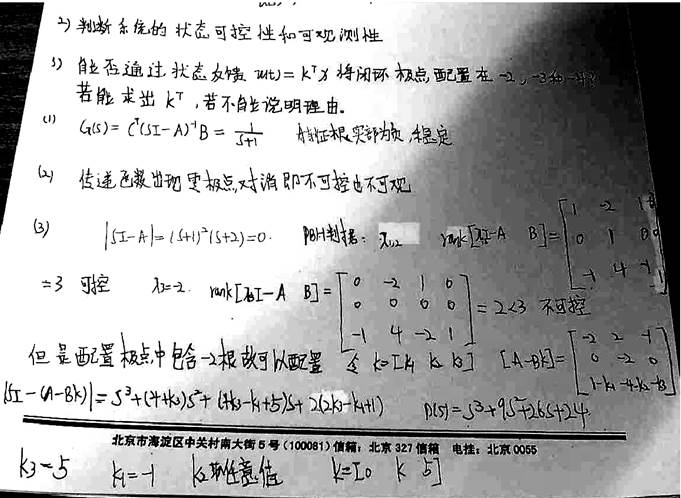 2) 判断系统的状态可控性和可观测性
3) 能否通过状态反馈 u(t) = K^T x 将闭环极点配置在 -2, -3和-4?
若能求出 K^T, 若不能说明理由。
(1) G(s) = C^T(SI-A)^-1 B = 1/(S+1) 特征根实部为负, 稳定
(2) 传递函数出现零极点对消即不可控也不可观
(3) |SI-A| = (S+1)^2 (S+2) = 0. PBH判据: λ1,2 rank[λI-A B] = [1 -2 1 0; 0 1 0 0; -1 4 -1 1]
=3 可控 λ3=-2. rank[λ3I-A B] = [0 -2 1 0; 0 0 0 0; -1 4 -2 1] = 2<3 不可控
但是配置极点中包含-2根故可以配置 令 K=[K1 K2 K3] [A-BK] = [-2 2 -1; 0 -2 0; 1-K1 -4-K2 -K3]
|SI-(A-BK)| = S^3+(4+K3)S^2+(4K3-K1+5)S+2(2K3-K1+1) D(S)=S^3+9S^2+26S+24
北京市海淀区中关村南大街5号(100081) 信箱: 北京327信箱 电挂: 北京0055
K3=5 K1=-1 K2取任意值 K=[0 K 5]